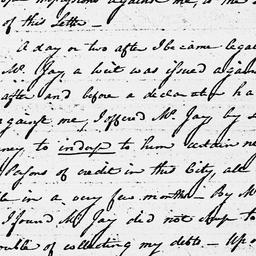 impressions against me, to the
of this Letter —
A day or two after I became legal
Mr. Jay, a writ was issued again
after and before a declarat ha
against me, I offered Mr. Jay by
ney to indorse to him certain ne
Persons of credit in this City, all
in a very few months — By M
I found Mr Jay did not chuse to
ouble of collecting my debts. — Up o